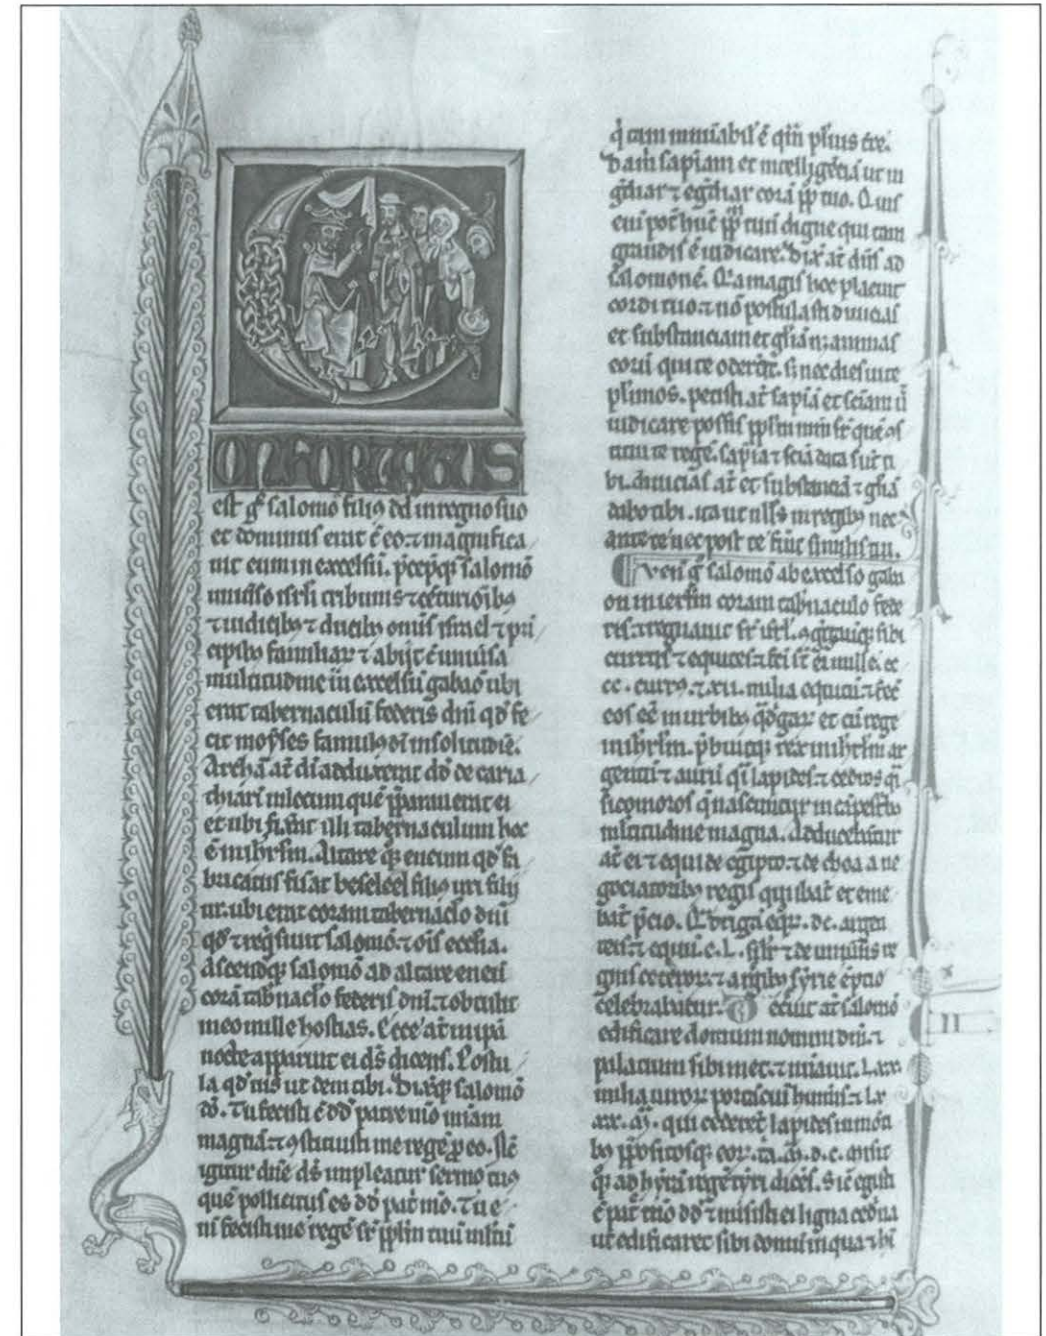 CONFORTATUS
est g̊ salomō filiꝰ dd̄ in regno suo
et dominus erat cū eo. ⁊ magnifica
uit eum in excelsū. p̄cepitqꝫ salomō
uniūso isrl̄i tribunis ⁊ cēturioībꝫ
⁊ iudicibꝫ ⁊ ducibꝫ omīs israel ⁊ pri
cipibꝫ familiaꝝ ⁊ abijt cū uniūsa
multitudine in excelsū gabaō ubi
erat tabernaculū federis dn̄i qd̄ fe
cit moyses famulꝰ dī in solitudīe.
Archā at̄ dī adduxerat dd̄ de caria
thiarī in locum quē p̄parauerat ei
et ubi fixat illi tabernaculum hoc
ē in ihrl̄m. Altare qꝫ eneum qd̄ fa
bricatus fūat beseleel filiꝰ uri filij
ur. ubi erat coram tabernaclo dn̄i
qd̄ ⁊ reqͥsiuit salomō. ⁊ oīs ecclia.
Ascenditqꝫ salomō ad altare eneū
corā tab̄naclo federis dn̄i. ⁊ obtulit
in eo mille hostias. Ecce at̄ in ipā
nocte apparuit ei ds̄ dicens. Postu
la qd̄ uis ut dem tibi. Dixitqꝫ salomō
dō. Tu fecisti cū dd̄ patre mō mīam
magnā. ⁊ ꝯstituisti me regē ꝓ eo. Nc̄
igitur dn̄e ds̄ impleatur sermo tuꝰ
quē pollicitus es dd̄ pat̄ mō. Tu e
ni fecisti me regē sr̄ pplm̄ tuū multū
qͥ tam innūabil̓ ē qͣm pl̓uis tr̄e.
Da m̄ sapīam et intelligēciā ut in
gͥdiar ⁊ egͥdiar corā pp̄lo tuo. Quis
eni pot̄ hūc pplm̄ tuū digne qui tam
grandis ē iudicare. Dix̄ at̄ dn̄s ad
salomonē. Quia magis hoc placuit
cordi tuo. ⁊ nō postulasti diuicias
et substanciam et gl̓iā. ⁊ animas
eoꝝ qui te oderāt. si nec dies uite
pl̓imos. petisti at̄ sapīā et sciam ut
iudicare possis pplm̄ meū sr̄ quē ꝯs
titui te regē. sapīa ⁊ sciā data sūt ti
bi. diuicias at̄ et substanciā ⁊ gl̓iā
dabo tibi. ita ut nll̓s in regibꝫ nec
ante te nec post te fūit similis tui.
Ueni g̊ salomō ab excelso gaba
on in ierl̄m coram tab̄naculo fede
ris. ⁊ regnauit sr̄ isrl̄. ꝯg̊gauitqꝫ sibi
currus ⁊ equites. ⁊ fc̄i st̄ ei mille. et
cc. currꝰ. ⁊ xii. milia equitū. ⁊ fec̄
eos eē in urbibꝫ qͣdgaꝝ et cū rege
in ihrl̄m. p̄buitqꝫ rex in ihrl̄m ar
gentū ⁊ aurū qͣi lapides. ⁊ cedros qͣi
sicomoros q̄ nascuntur in cāpestribꝫ
multitudine magna. Adducebant̄
at̄ ei ⁊ equi de egipto. ⁊ de choa a ne
gociatoribꝫ regis qui ibāt et eme
bāt p̄cio. Qͣdrigā eqͥꝝ. dc. argen
teis. ⁊ equū. c. l. sil̓r ⁊ de uniūsis re
gnis ceteroꝝ. ⁊ a regibꝫ syrie ēptio
celebrabatur. Decreuit at̄ salomō
edificare domum nomini dn̄i. ⁊
palacium sibimet. ⁊ nūauit. lxx.
milia uiroꝝ portātiū humis. ⁊ lx
xx. m̄. qui cederēt lapides in mōn
bꝫ p̄positosqꝫ eoꝝ. iii. m̄. dc. misit
qꝫ ad hyrā regē tyri dicēs. Sic egisti
cū pat̄ mō dd̄ ⁊ misisti ei ligna cedrīa
ut edificaret sibi domū in qua ⁊ hī